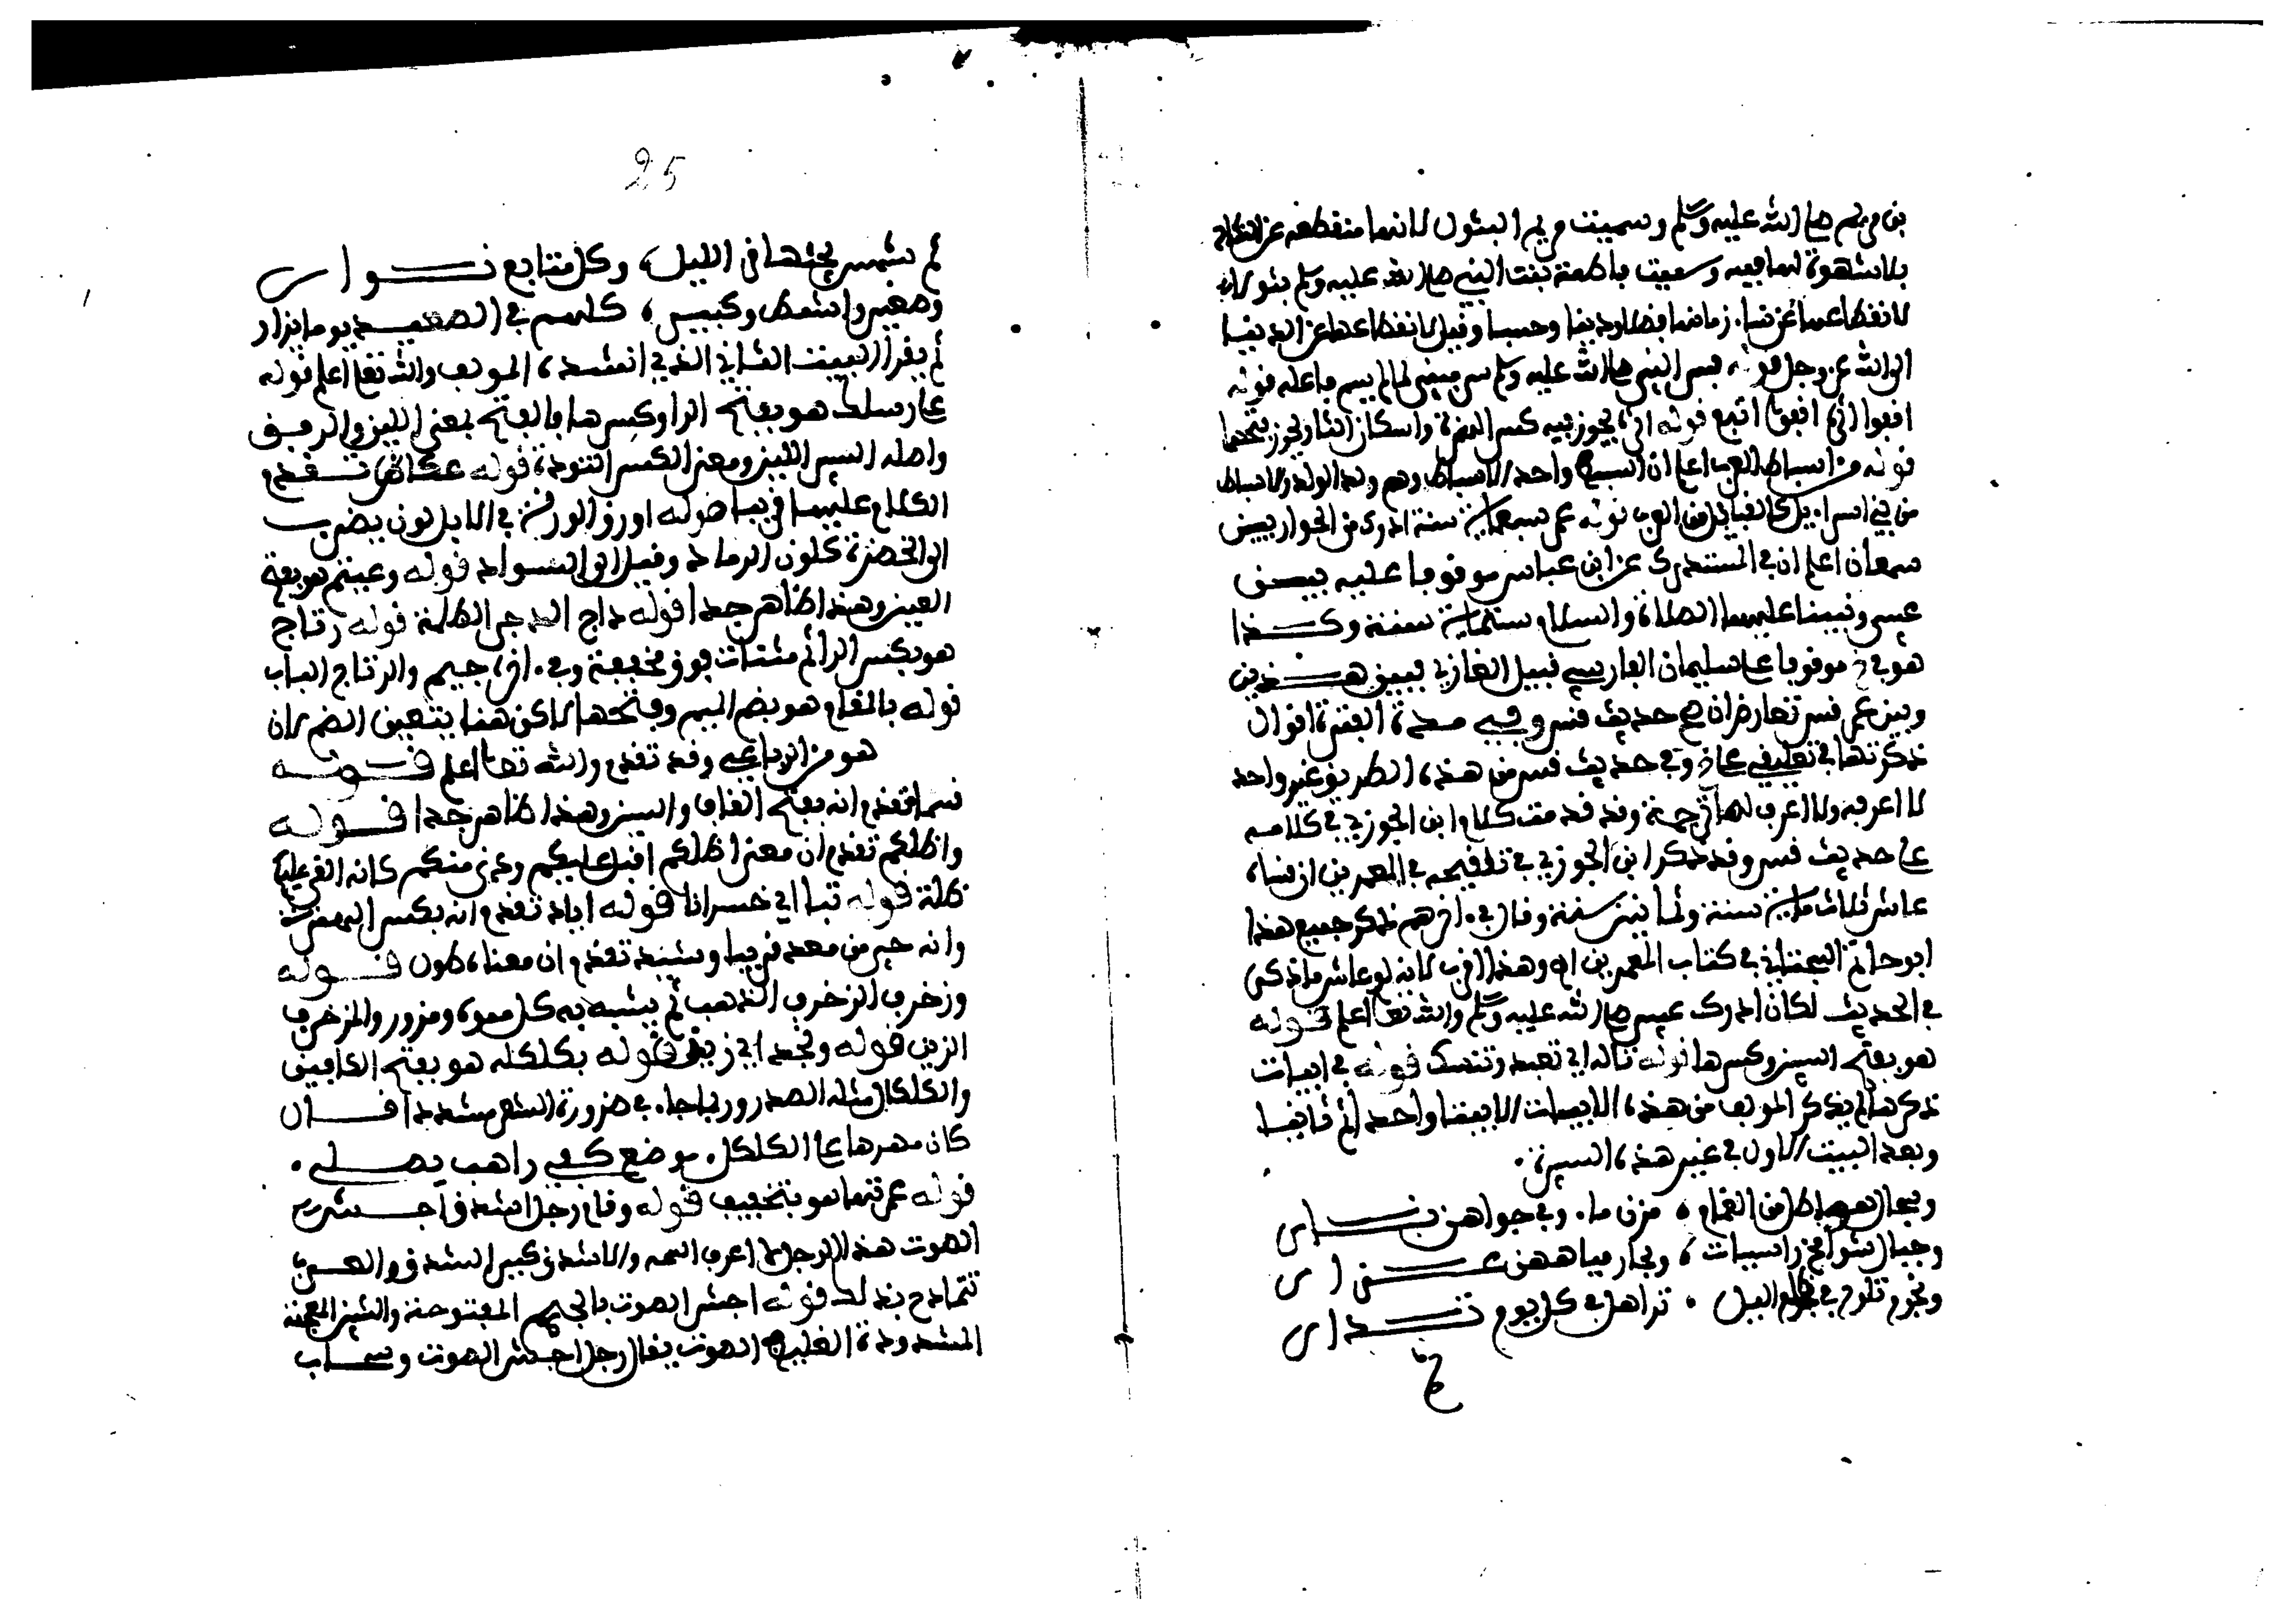 بن مريم صلى الله عليه وسلم وسميت مريم البتول لانها منقطعة عن النكاح
بلا شهوة لها فيه وسميت فاطمة بنت النبي صلى الله عليه وسلم بتولا
لانقطاعها عن نسا زمانها فضلا ودينا وحسبا وقيل لانقطاعها عن الدنيا
الى الله عز وجل قوله فسر النبي صلى الله عليه وسلم سر مبني لما لم يسم فاعله قوله
اقفوا اثر اقفوا اتبع قوله اثر يجوز فيه كسر الهمزة واسكان الثا ويجوز فتحهما
قوله من اسباط العرب اعلم ان السبط واحد الاسباط وهم ولد الولد والاسباط
من بني اسرايل كالقبايل من العرب قوله عمر سبعماية سنة ادرك من الحواريين
سمعان اعلم ان في المستدرك عن ابن عباس موقوفا عليه بين
عيسى ونبينا عليهما الصلاة والسلام ستماية سنة وكذا
هو في خ موقوفا على سليمان الفارسي قبيل المغازي فبين هذين
وبين عمر قس تعارض ان صح حديث قس وفي مدة الفترة اقوال
ذكرتها في تعليقي على خ وفي حديث قس من هذه الطريق غير واحد
لا اعرفه ولا اعرف لهم ترجمة وقد قدمت كلام ابن الجوزي في كلامه
على حديث قس وقد ذكر ابن الجوزي في تلقيحه في المعمرين ان قسا
عاش ثلاث ماية سنة وثمانين سنة وقال في اخرهم ذكر جميع هذا
ابو حاتم السجستاني في كتاب المعمرين اه وهذا اقرب لانه لو عاش ما ذكر
في الحديث لكان ادرك عيسى صلى الله عليه وسلم والله تعا اعلم قوله
هو بفتح السين وكسرها قوله تاله اي تعبد وتنسك قوله في ابيات
ذكرها لم يذكر المولف من هذه الابيات الا بيتا واحدا ثم ثانيا
وبعد البيت الاول في غير هذه السيرة
وسجال هواطل من الغمام ، مزن ما وفي جواهن نار
وجبال شوامخ راسيات ، وبحار مياههن غزار
ونجوم تلوح في ظلم الليل . تراها في كل يوم تدار
25
ثم شمس يحثها في الليل ، وكل متابع نوار
وصغير واشمط وكبير ، كلهم في الصعيد يوما يزار
ثم يقرا البيت الثاني الذي انشده المولف والله تعا اعلم قوله
على رسلك هو بفتح الرا وكسرها فالفتح بمعنى اللين والرفق
واصله السير اللين ومعنى الكسر التودة قوله عكاظ تقدم
الكلام عليها قريبا قوله اورق الورقة في الابل لون يضرب
الى الخضرة كلون الرماد وقيل الى السواد قوله وعيتم هو بفتح
العين وهذا ظاهر جدا قوله داج الدجى الظلمة قوله رتاج
هو بكسر الرا ثم مثناة فوق مخففة وفي اخره جيم والرتاج الباب
قوله بالمقام هو بضم الميم وفتحها لاكن هنا يتعين الضم لان
هو من الرباعي وقد تقدم والله تعا اعلم قوله
قسما تقدم انه بفتح القاف والسين وهذا ظاهر جدا قوله
واظلكم تقدم ان معنى اظلكم اقبل عليكم ودنى منكم كانه القى عليكم
ظلة قوله تبا اي خسرانا قوله اياد تقدم انه بكسر الهمزة
وانه حي من معد قريبا وشيد تقدم ان معناه طول قوله
وزخرف الزخرف الذهب ثم يشبه به كل مموه ومزور والمزخرف
الزين قوله ونجد اي زين قوله بكلكله هو بفتح الكافين
والكلكال مثله الصدر وربما جا في ضرورة الشعر مشددا قال
كان مهرها على الكلكل . موضع كفي راهب يصلي .
قوله عرفتها هو بتخفيف قوله وقام رجل اشدق اجش
الصوت هذا الرجل لا اعرف اسمه والاشدق كبير الشدق والعرب
تتمادح بذلك قوله اجش الصوت بالجيم المفتوحة والشين المعجمة
المشددة الغليظ الصوت يقال رجل اجش الصوت وسحاب